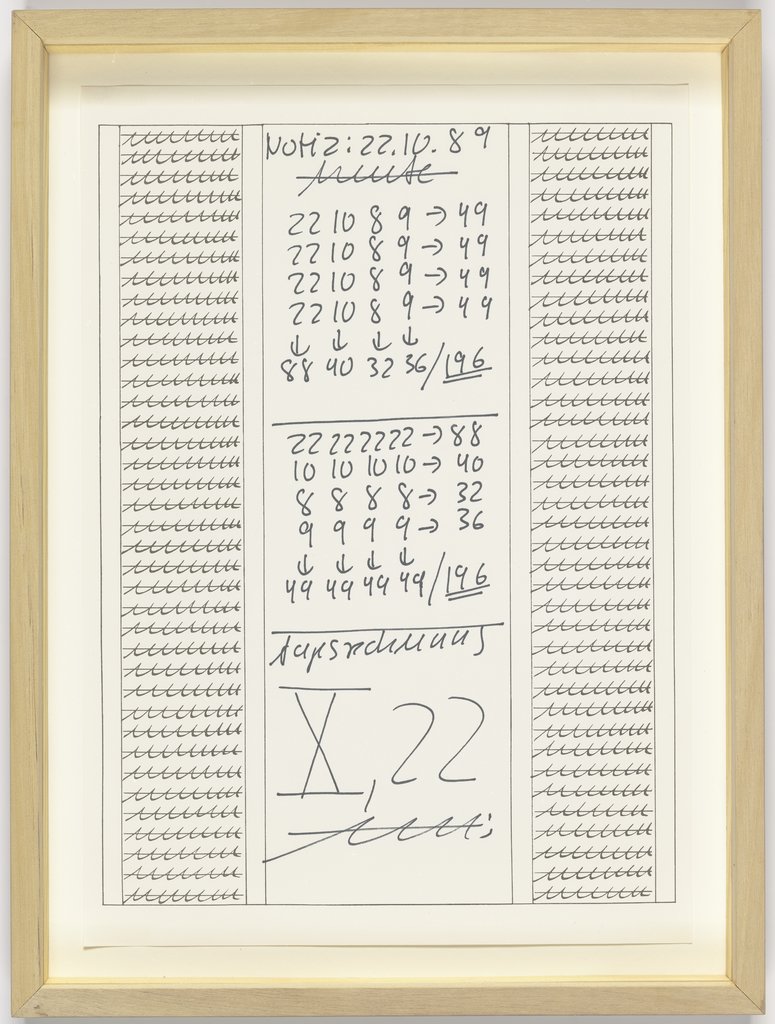 Notiz: 22.10.89
heute
22 10 8 9 → 49
22 10 8 9 → 49
22 10 8 9 → 49
22 10 8 9 → 49
↓ ↓ ↓ ↓
88 40 32 36/196
22 22 22 22 → 88
10 10 10 10 → 40
8 8 8 8 → 32
9 9 9 9 → 36
↓ ↓ ↓ ↓
49 49 49 49/196
Tagsrechnung
X, 22